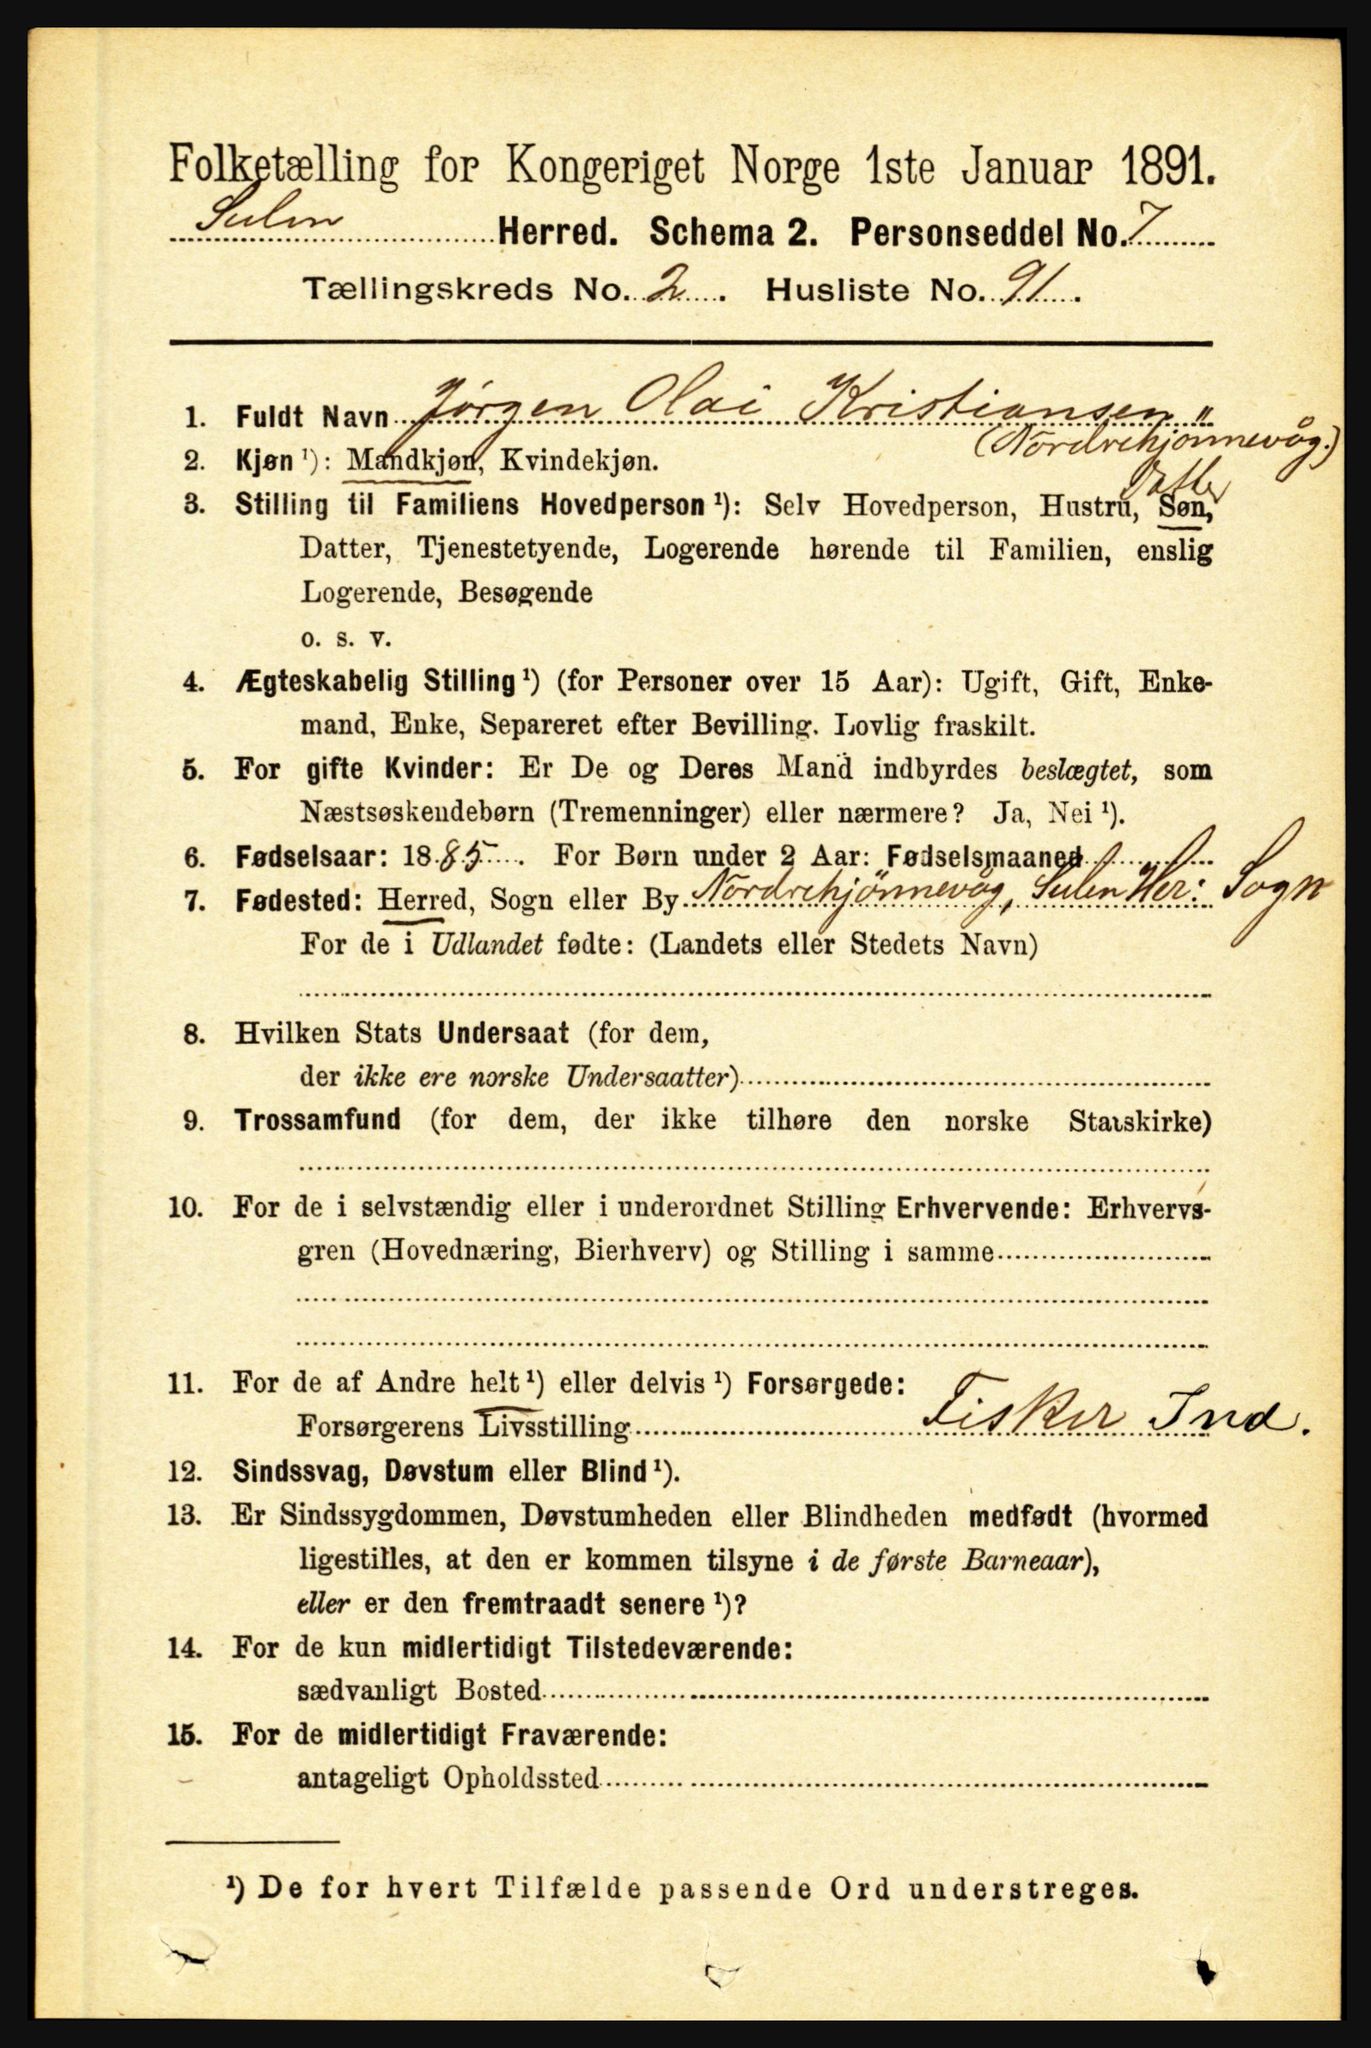 Folketælling for Kongeriget Norge 1ste Januar 1891.
Sulen Herred. Schema 2. Personseddel No. 7
Tællingskreds No. 2. Husliste No. 91.
1. Fuldt Navn Jørgen Olai Kristiansen "
(Nordrehjønnevåg.)
2. Kjøn ¹): Mandkjøn, Kvindekjøn.
Datter
3. Stilling til Familiens Hovedperson ¹): Selv Hovedperson, Hustru, Søn,
Datter, Tjenestetyende, Logerende hørende til Familien, enslig
Logerende, Besøgende
o. s. v.
4. Ægteskabelig Stilling ¹) (for Personer over 15 Aar): Ugift, Gift, Enke-
mand, Enke, Separeret efter Bevilling. Lovlig fraskilt.
5. For gifte Kvinder: Er De og Deres Mand indbyrdes beslægtet, som
Næstsøskendebørn (Tremenninger) eller nærmere? Ja, Nei ¹).
6. Fødselsaar: 1885. For Børn under 2 Aar: Fødselsmaaned
7. Fødested: Herred, Sogn eller By Nordrehjønnevåg, Sulen Her: Sogn
For de i Udlandet fødte: (Landets eller Stedets Navn)
8. Hvilken Stats Undersaat (for dem,
der ikke ere norske Undersaatter)
9. Trossamfund (for dem, der ikke tilhøre den norske Statskirke)
10. For de i selvstændig eller i underordnet Stilling Erhvervende: Erhvervs-
gren (Hovednæring, Bierhverv) og Stilling i samme
11. For de af Andre helt ¹) eller delvis ¹) Forsørgede:
Forsørgerens Livsstilling Fisker Ind.
12. Sindssvag, Døvstum eller Blind ¹).
13. Er Sindssygdommen, Døvstumheden eller Blindheden medfødt (hvormed
ligestilles, at den er kommen tilsyne i de første Barneaar),
eller er den fremtraadt senere ¹)?
14. For de kun midlertidigt Tilstedeværende:
sædvanligt Bosted
15. For de midlertidigt Fraværende:
antageligt Opholdssted
¹) De for hvert Tilfælde passende Ord understreges.